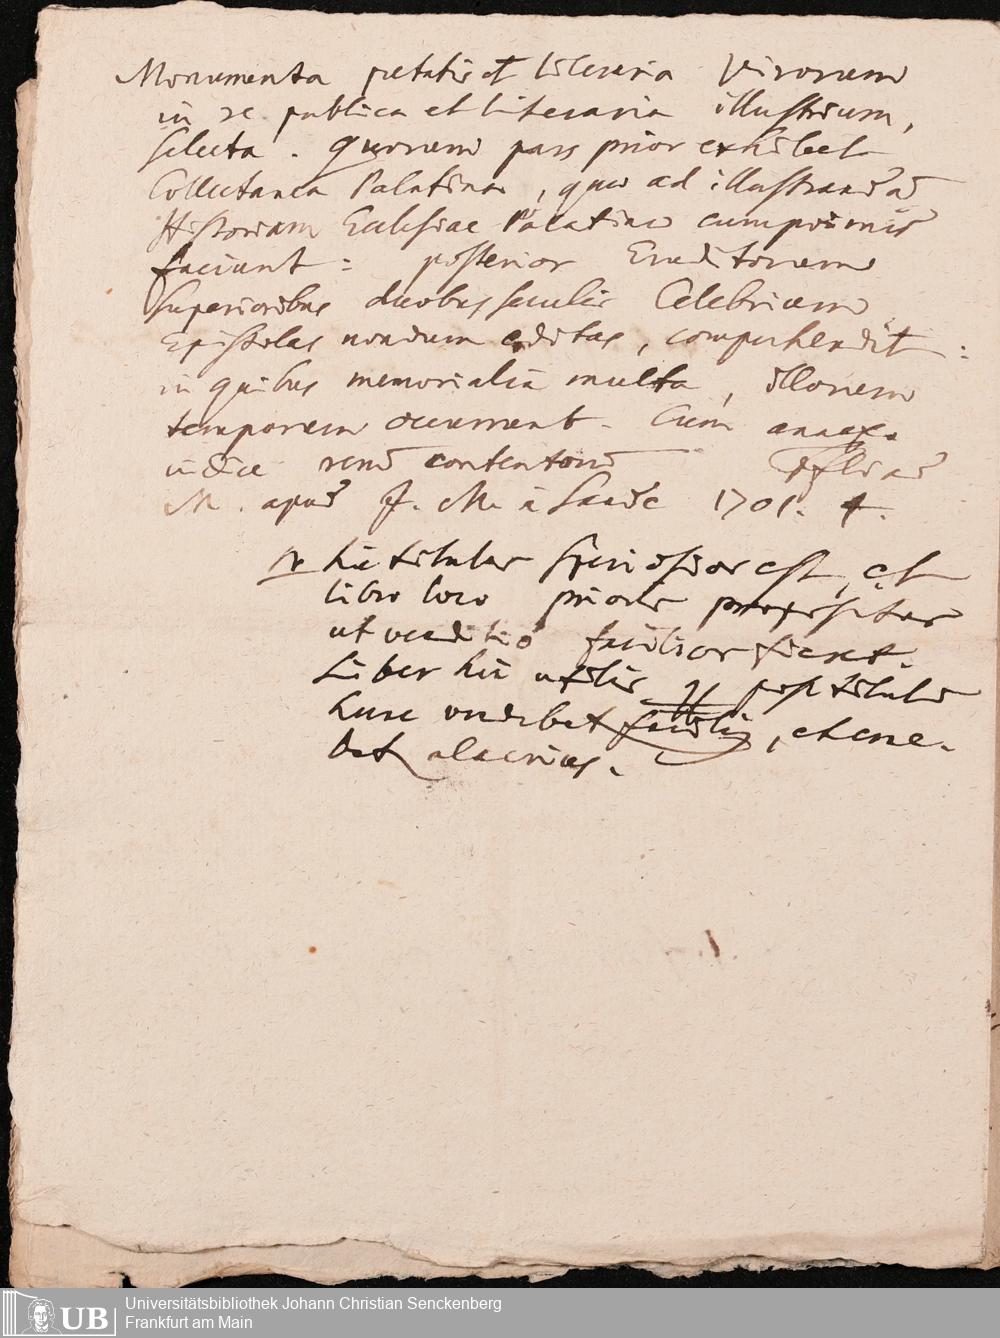 Monumenta pietatis et literaria Virorum
in re publica et literaria illustrium,
selecta. Quorum pars prior exhibet
Collectanea Palatina, quae ad illustrandā
Historiam Ecclesiae Palatinae cumprimis
faciunt: posterior Eruditorum
superioribus duobus seculis Celebrium
Epistolas nondum editas, comprehendit:
in quibus memorialia multa, illorum
temporum occurrunt. Cum annexo
indice rerū contentorū
M. apud J. M. à Sande 1701. 4.
hic titulus speciosior est, et
libro loco prioris
ut venditio facilior fieret.
Liber hic utilis post titulu
hunc facilis, et
alacrius.
Universitätsbibliothek Johann Christian Senckenberg
UB Frankfurt am Main